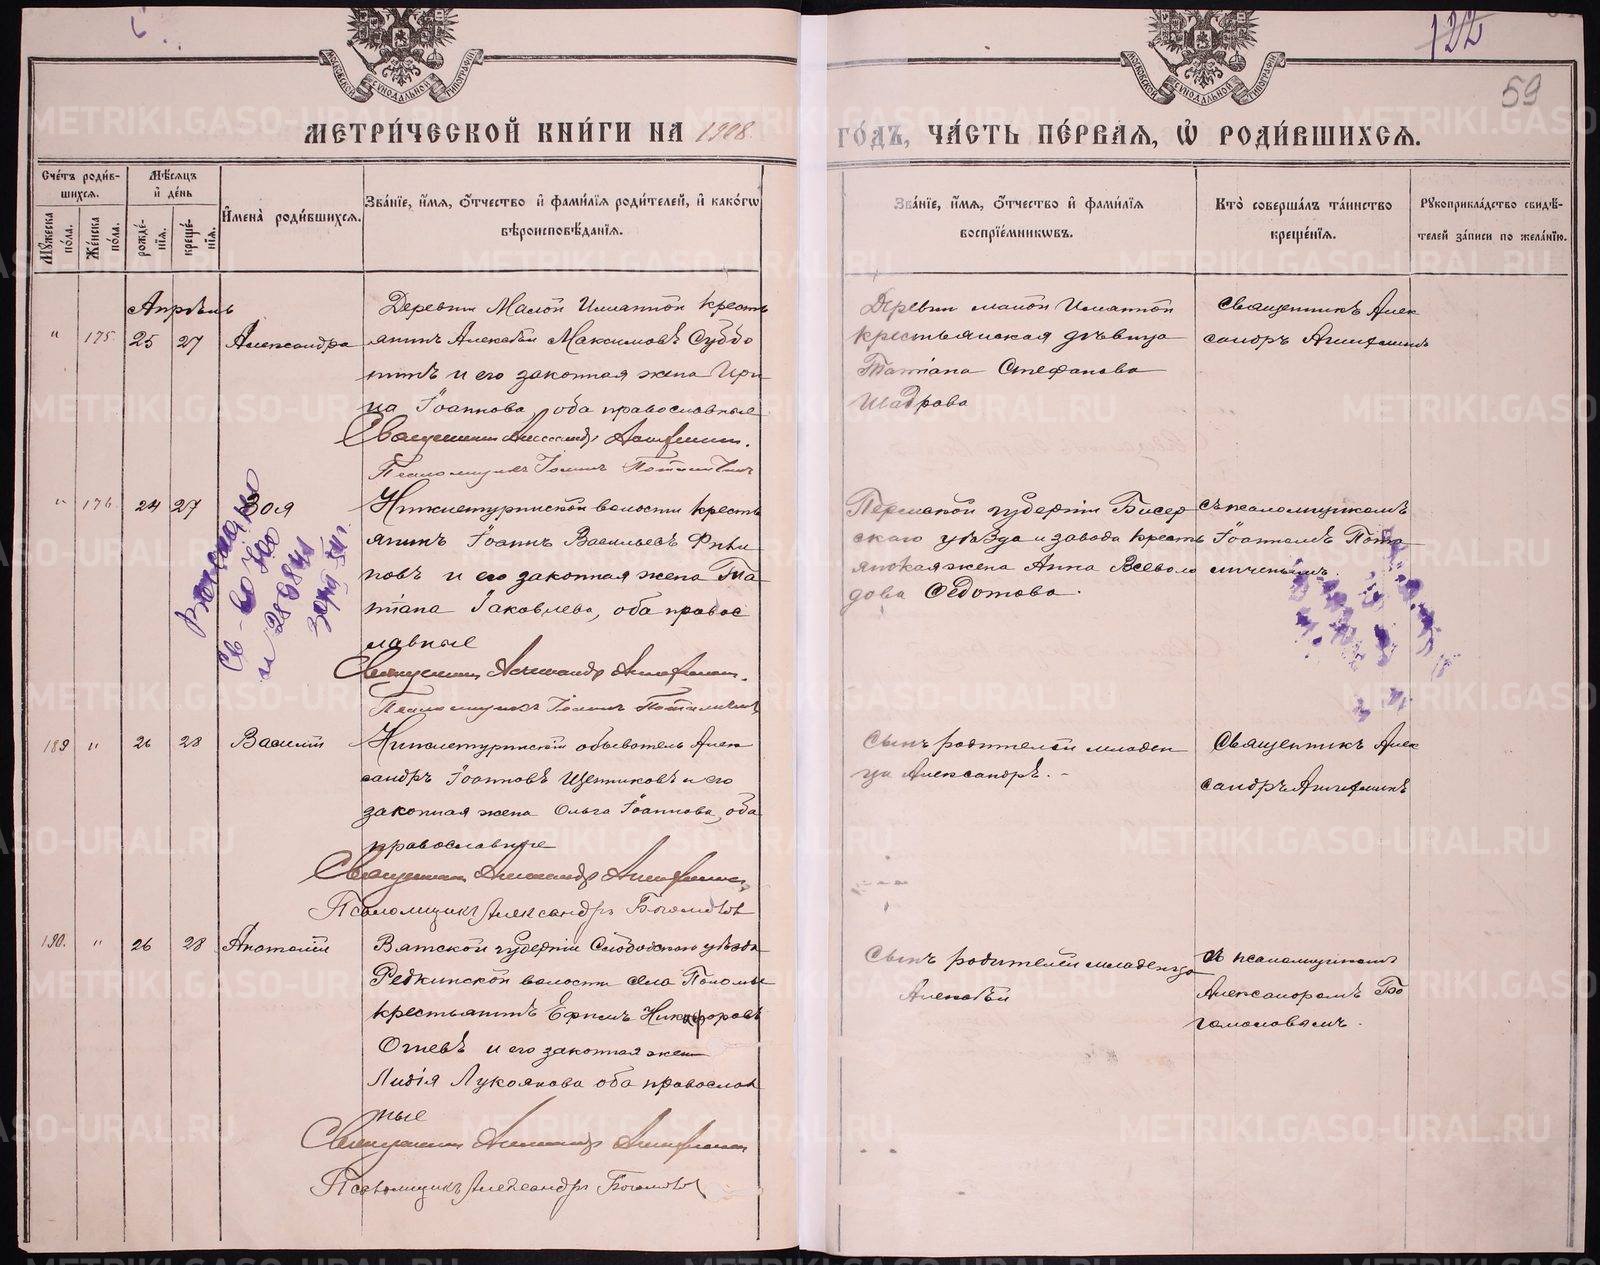 122
59
МОСКОВСКОЙ СѴНОДАЛЬНОЙ ТИПОГРАФІИ
МОСКОВСКОЙ СѴНОДАЛЬНОЙ ТИПОГРАФІИ
МЕТРИ́ЧЕСКОЙ КНИ́ГИ НА 1908
ГО́ДЪ, ЧА́СТЬ ПЕ́РВАЯ, Ѡ҆ РОДИ́ВШИХСЯ.
Сче́тъ роди́в-
шихся.
Мꙋ́жеска по́ла.
Же́нска по́ла.
Мѣ́сяцъ и҆ де́нь
рожде́-нїя.
креще́-нїя.
И҆мена̀ роди́вшихся.
Зва́нїе, и҆́мя, о҆́тчество и҆ фами́лїя роди́телей, и҆ како́гѡ
вѣроисповѣ́данїя.
Зва́нїе, и҆́мя, о҆́тчество и҆ фами́лїя
воспрїе́мникѡвъ.
Кто̀ соверша́лъ та́инство
креще́нїя.
Рꙋкоприкла́дство свидѣ́-
телей за́писи по жела́нїю.
Апрѣль
" 175 25 27 Александра
Деревни Малой Именной кресть
янинъ Алексѣй Максимовъ Суббо
тинъ и его законная жена Ири
на Іоаннова, оба православные
Священникъ Александръ
Псаломщикъ Іоаннъ
Деревни малой Именной
крестьянская дѣвица
Татіана Стефанова
Шадрова
Священникъ Алек
сандръ
" 176 24 27 Зоя
Нижнетуринской волости кресть
янинъ Іоаннъ Васильевъ Фили
повъ и его законная жена Та
тіана Іаковлева, оба правос
лавные
Священникъ Александръ
Псаломщикъ Іоаннъ
Пермской губерніи Бисер
скаго уѣзда и завода кресть
янская жена Анна Всеволо
дова Федотова.
съ псаломщикомъ
Іоанномъ
св-во
Зоя
189 " 26 28 Василій
Нижнетуринскій обыватель Алек
сандръ Іоанновъ Щенниковъ и его
законная жена Ольга Іоаннова, оба
православные
Священникъ Александръ
Псаломщикъ Александръ Богомоловъ
Сынъ родителей младен
ца Александръ.
Священникъ Алек
сандръ
190. " 26 28 Анатолій
Вятской губерніи Слободскаго уѣзда
волости села
крестьянинъ Ефимъ Никифоровъ
Огневъ и его законная жена
Лидія Лукоянова оба православ
ные
Священникъ Александръ
Псаломщикъ Александръ Богомоловъ
Сынъ родителей младенца
Алексѣй
съ псаломщикомъ
Александромъ Бо
гомоловымъ.
METRIKI.GASO-URAL.RU